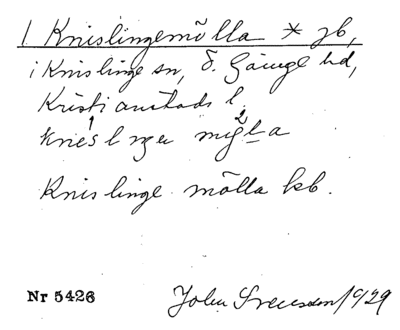 1 Knislingemölla * jb,
i Knislinge sn, ö. Göinge hd,
Kristianstads l.
Knislinge mölla kb.
Nr 5426 John Svensson 1929